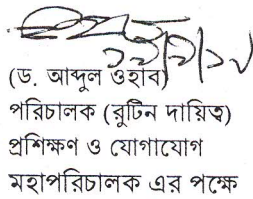 (ড. আব্দুল ওহাব)
পরিচালক (রুটিন দায়িত্ব)
প্রশিক্ষণ ও যোগাযোগ
মহাপরিচালক এর পক্ষে